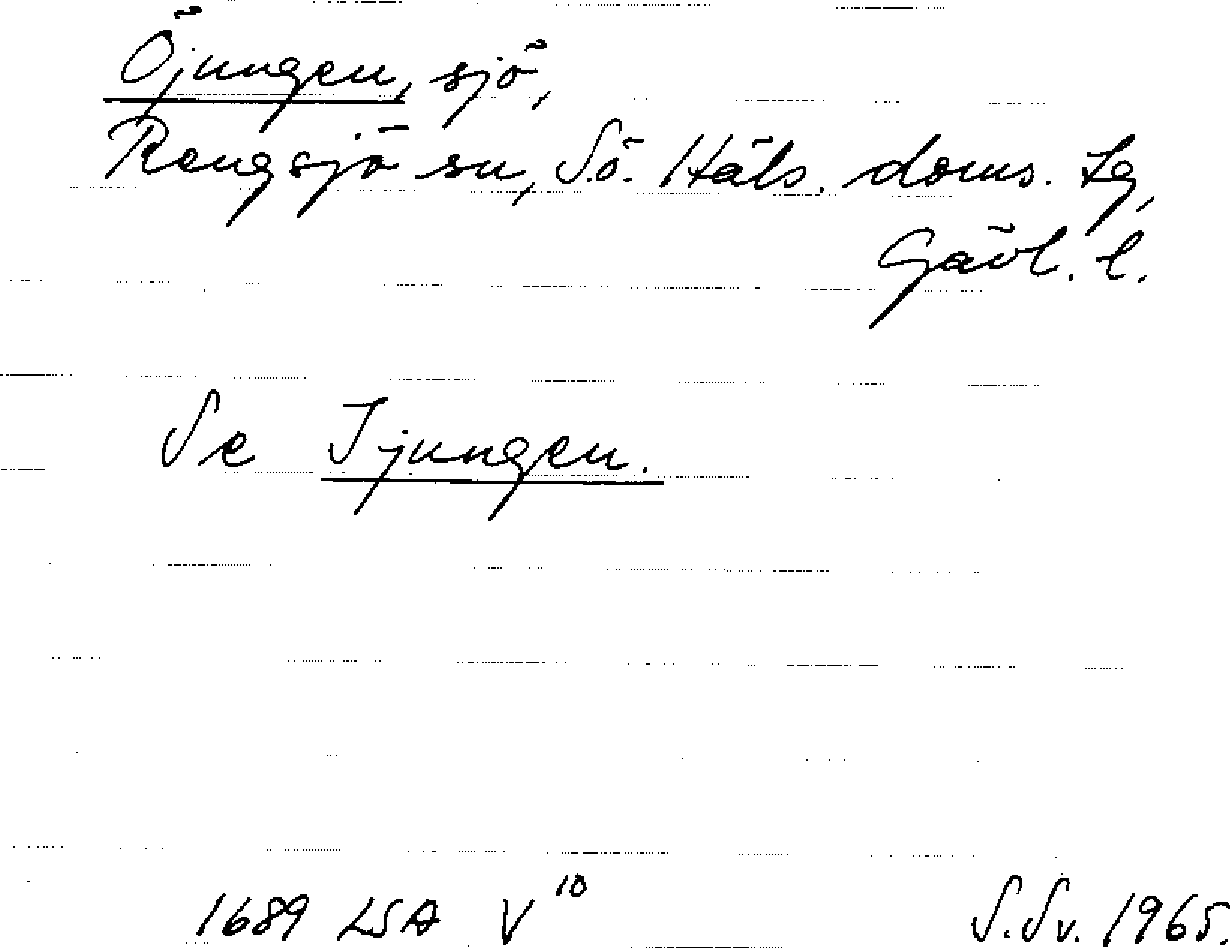 Öjungen, sjö,
Rengsjö sn, S.ö. Häls. doms. lg,
Gävl. l.
Se Ijungen.
1689 LSA V¹⁰
S.Sv. 1965.